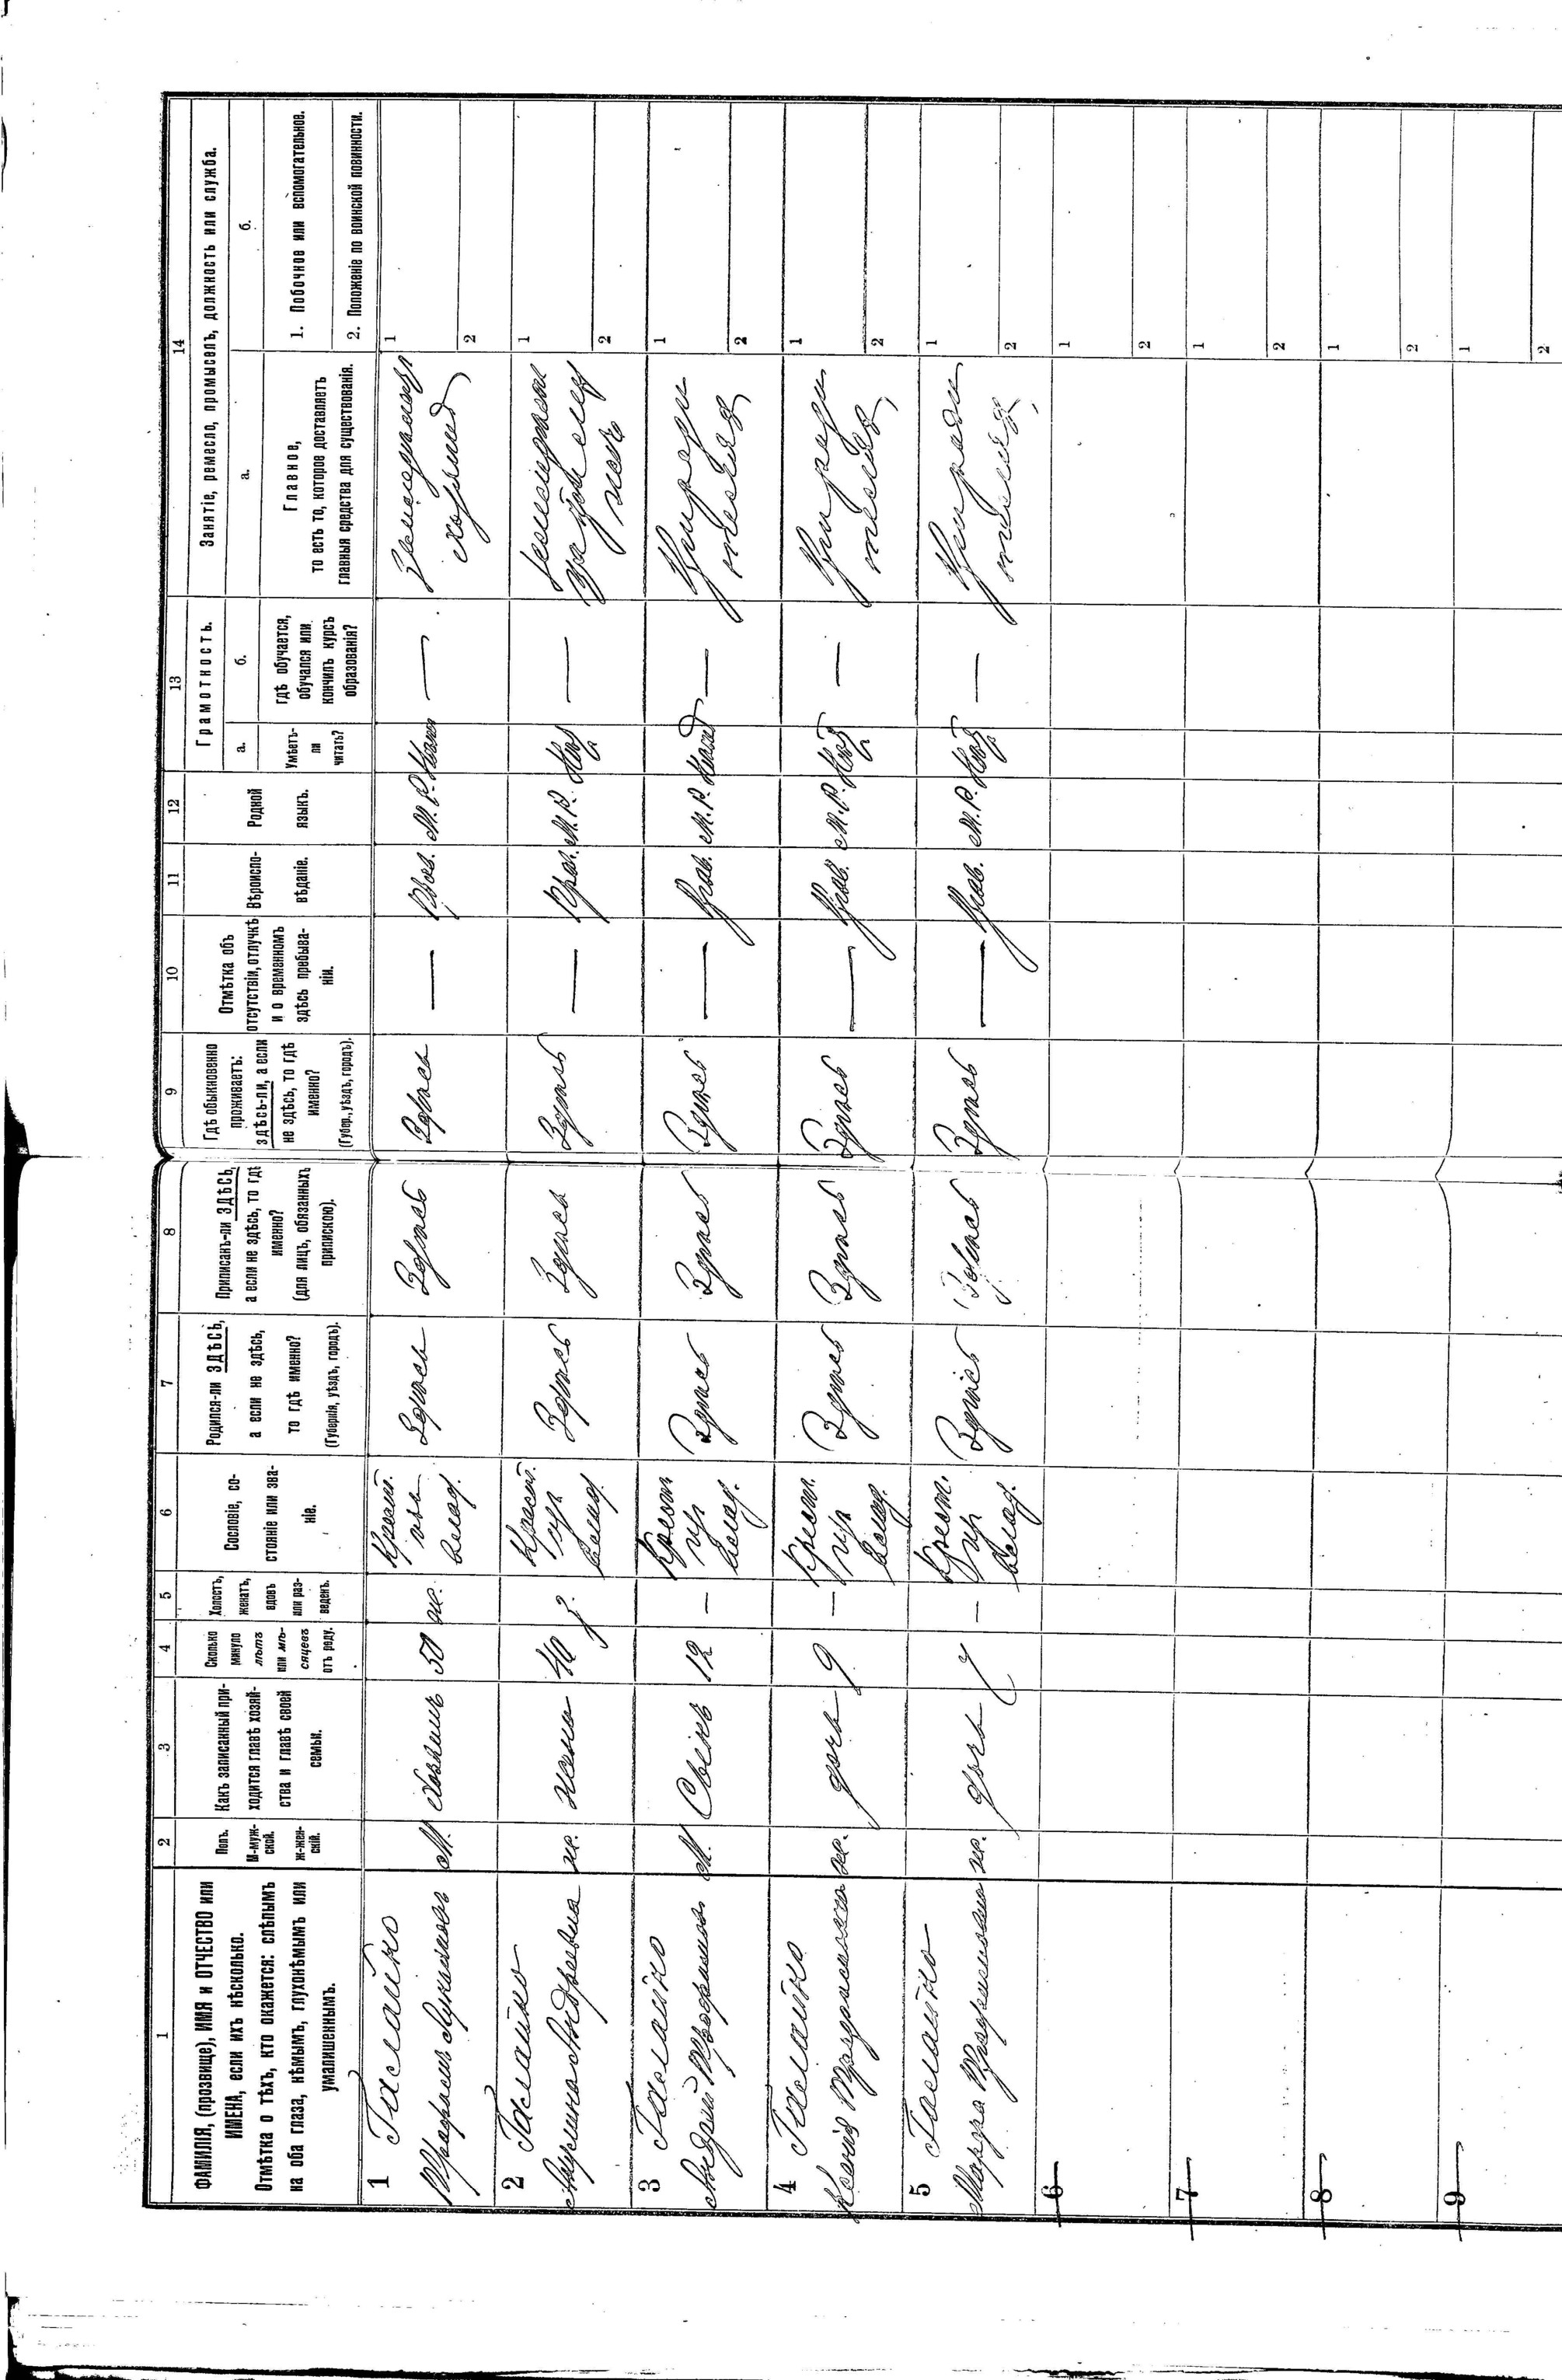 1
ФАМИЛІЯ, (прозвище), ИМЯ и ОТЧЕСТВО или
ИМЕНА, если ихъ нѣсколько.
Отмѣтка о тѣхъ, кто окажется: слѣпымъ
на оба глаза, нѣмымъ, глухонѣмымъ или
умалишеннымъ.
2
Полъ.
М-муж-
ской.
Ж-жен-
скій.
3
Какъ записанный при-
ходится главѣ хозяй-
ства и главѣ своей
семьи.
4
Сколько
минуло
лѣтъ
или мѣ-
сяцевъ
отъ роду.
5
Холостъ,
женатъ,
вдовъ
или раз-
веденъ.
6
Сословіе, со-
стояніе или зва-
ніе.
7
Родился-ли ЗДѢСЬ,
а если не здѣсь,
то гдѣ именно?
(Губернія, уѣздъ, городъ).
8
Приписанъ-ли ЗДѢСЬ,
а если не здѣсь, то гдѣ
именно?
(для лицъ, обязанныхъ
припискою).
9
Гдѣ обыкновенно
проживаетъ:
здѣсь-ли, а если
не здѣсь, то гдѣ
именно?
(Губер., уѣздъ, городъ).
10
Отмѣтка объ
отсутствіи, отлучкѣ
и о временномъ
здѣсь пребыва-
ніи.
11
Вѣроиспо-
вѣданіе.
12
Родной
языкъ.
13
Грамотность.
а.
Умѣетъ-
ли
читать?
б.
гдѣ обучается,
обучался или
кончилъ курсъ
образованія?
14
Занятіе, ремесло, промыселъ, должность или служба.
а.
Главное,
то есть то, которое доставляетъ
главныя средства для существованія.
б.
1. Побочное или вспомогательное.
2. Положеніе по воинской повинности.
1 Гаслайко
Трафимъ
М. Хозяинъ 50 ж.
Крест.
изъ
владѣ.
Здѣсь Здѣсь Здѣсь — Прав. М.Р. —
1
2
2 Гаслайко
Андреевна
ж. жена 40 з.
Крест.
изъ
владѣ.
Здѣсь Здѣсь Здѣсь — Прав. М.Р. Нѣтъ —
1
2
3 Гаслайко
Андрей Трофимовъ
М. Сынъ 12 —
Крест.
изъ
владѣ.
Здѣсь Здѣсь Здѣсь — Прав. М.Р. —
При роди
теляхъ
1
2
4 Гаслайко
Ксенія Трофимовна
ж. дочь 9 —
Крест.
изъ
владѣ.
Здѣсь Здѣсь Здѣсь — Прав. М.Р. Нѣтъ —
При роди
теляхъ
1
2
5 Гаслайко
Марфа Трофимовна
ж. дочь 7 —
Крест.
изъ
владѣ.
Здѣсь Здѣсь Здѣсь — Прав. М.Р. Нѣтъ —
При роди
теляхъ
1
2
6
1
2
7
1
2
8
1
2
9
1
2